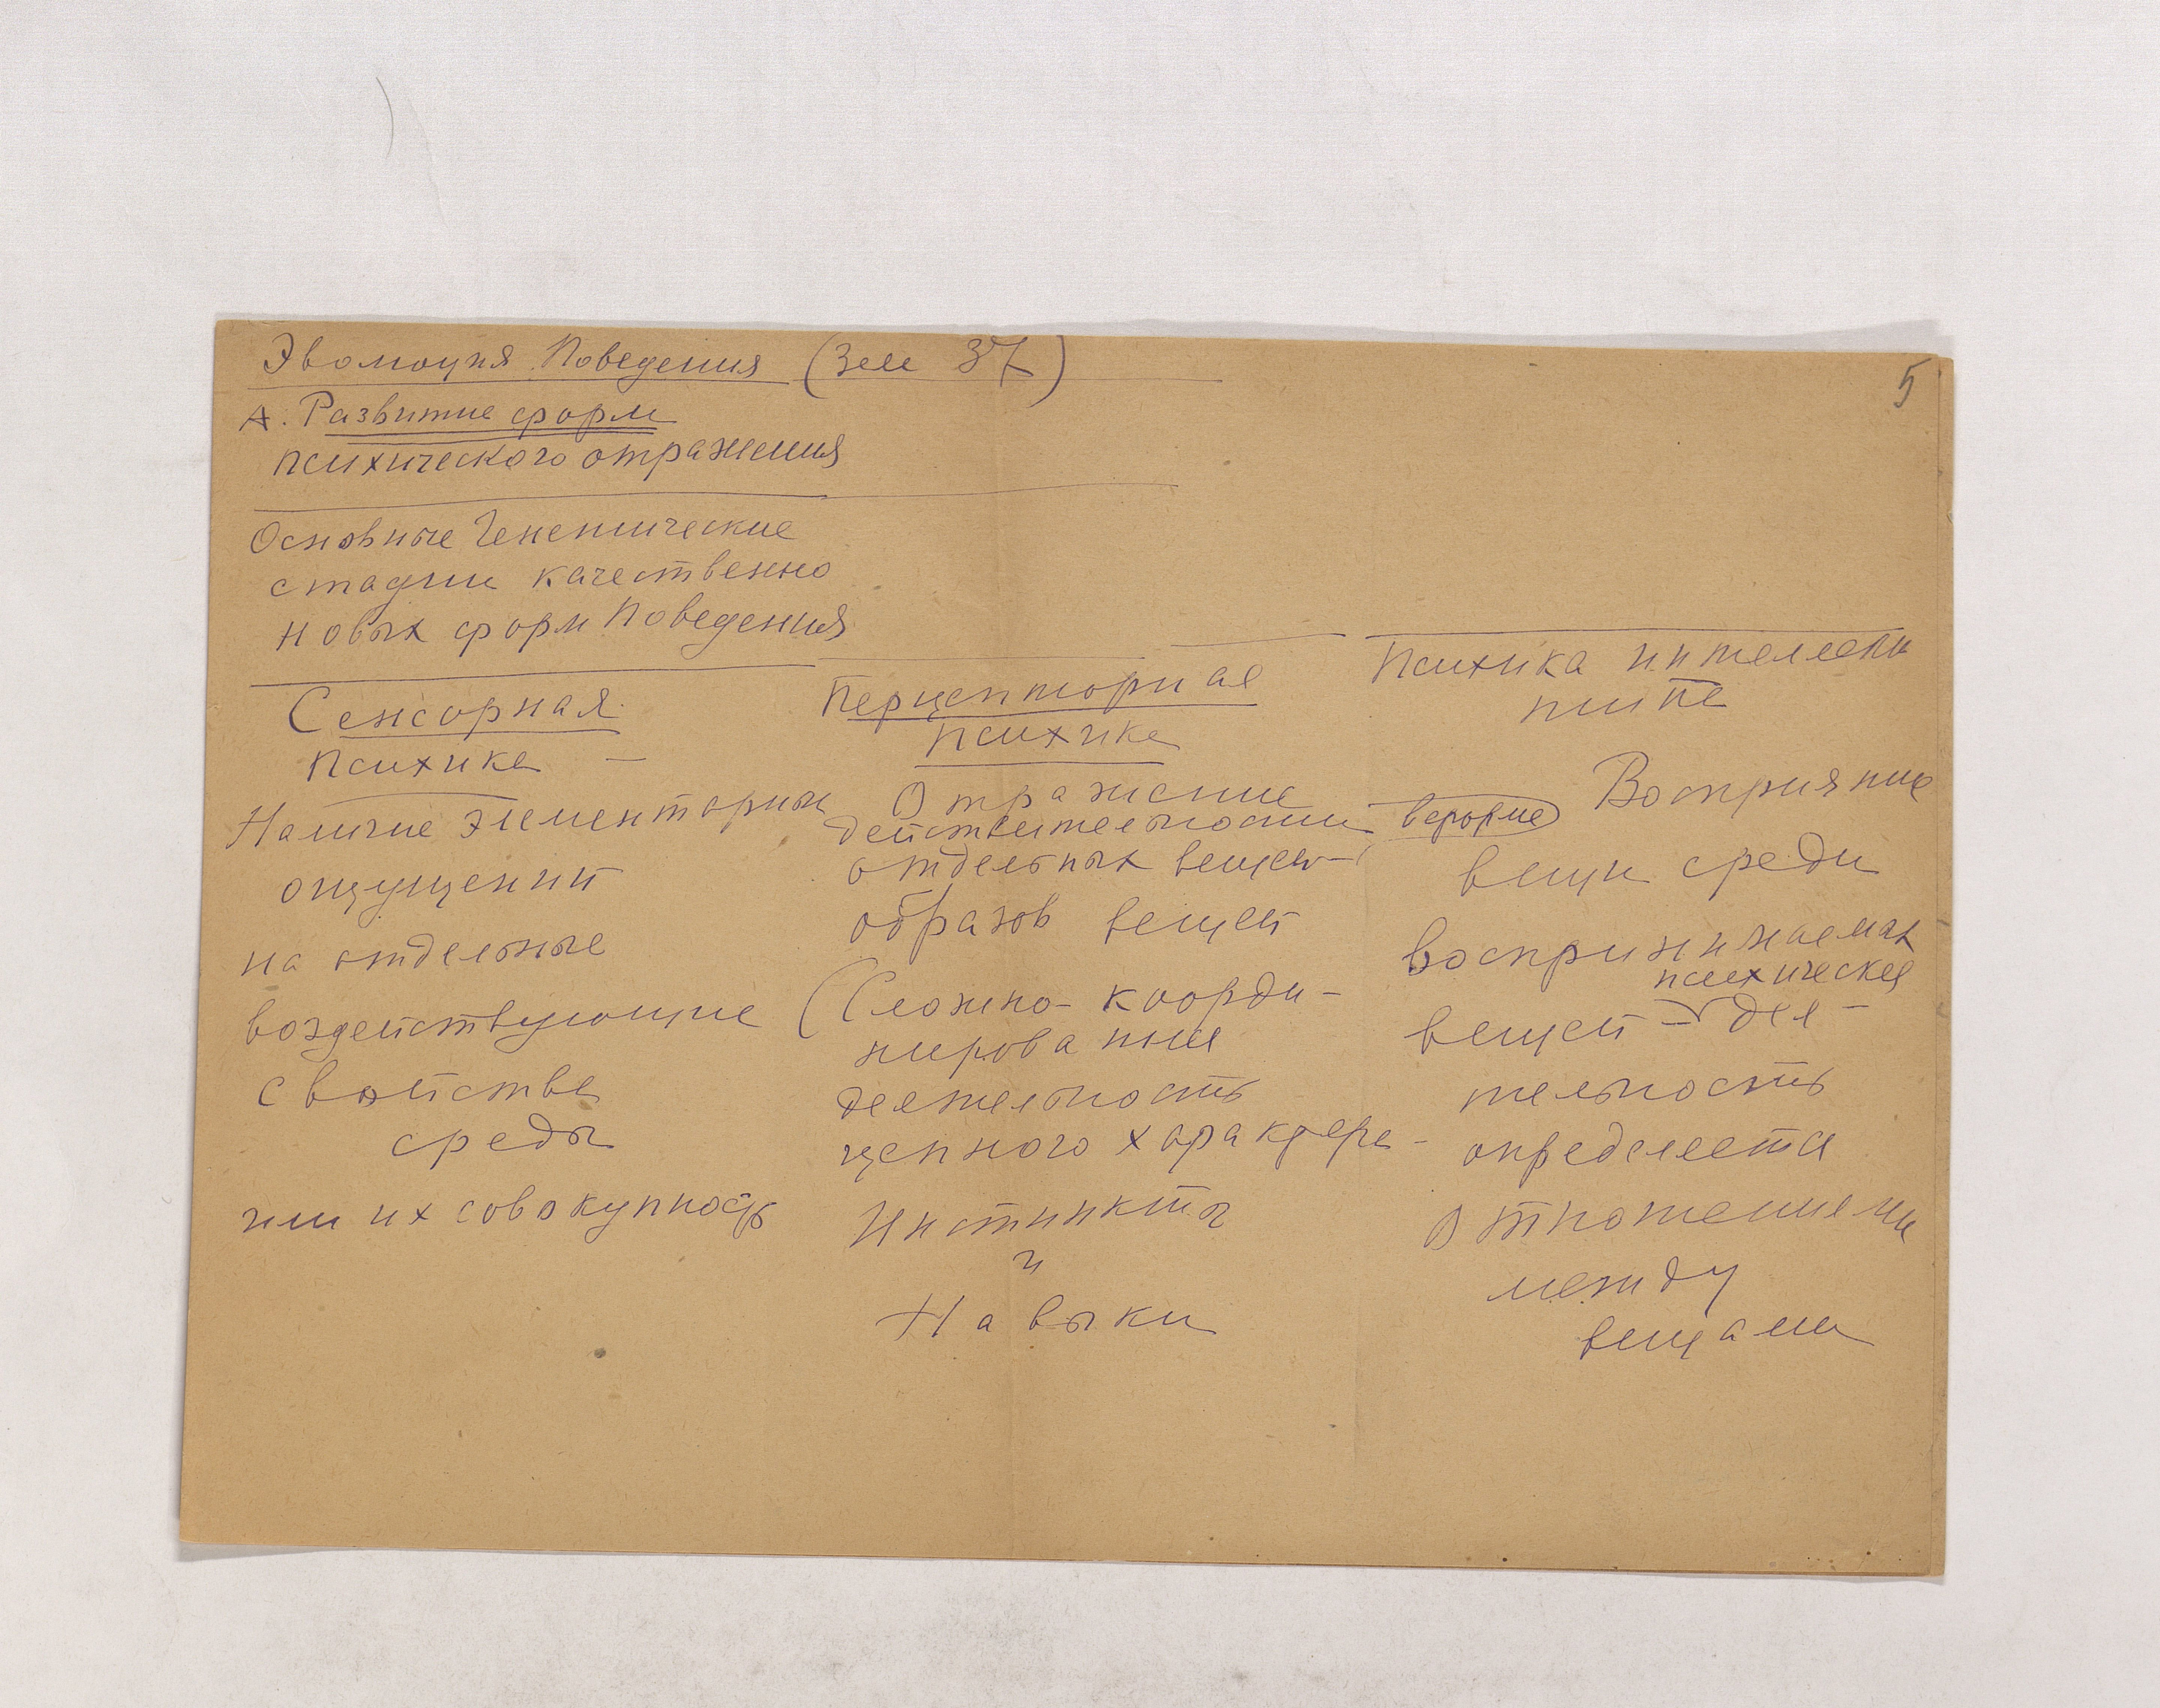 Эволюция Поведения (Зал 37)
5
А. Развитие форм
психического отражения
Основные Генетические
стадии качественно
новых форм Поведения
Сенсорная
психика —
Наличие элементарных
ощущений
на отдельные
воздействующие
свойства
среды
или их совокупность
Перцепторная
психика
Отражение
действительности
отдельных вещей —
образов вещей
(Сложно-коорди-
нированная
деятельность
цепного характера —
Инстинкты
и
Навыки
Психика интеллект
типа
Восприятие
в форме
вещи среди
воспринимаемых
психическая
вещей — дея-
тельность
определяется
Отношениями
между
вещами